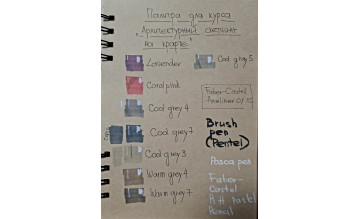 Палитра для курса
"Архитектурный скетчинг
на крафте"
Lavender
Cool grey 5
Coral pink
Cool grey 4
Cool grey 7
Cool grey 3
Warm grey 4
Warm grey 7
Faber-Castel
Brush
pen
(Pentel)
Posca pen
Faber-
Castel
Pitt pastel
Pencil